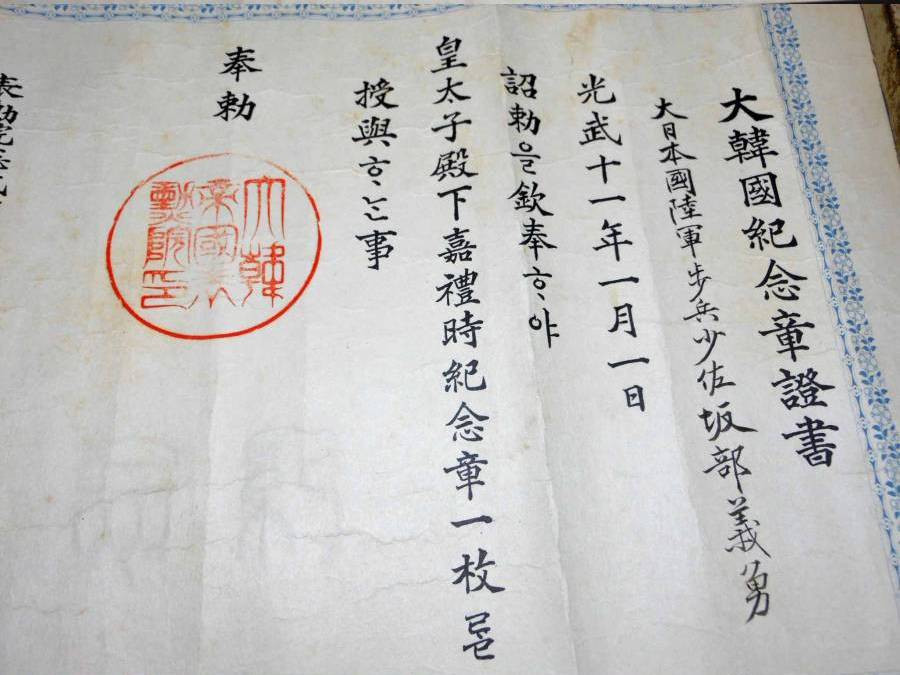 大韓國紀念章證書
大日本國陸軍步兵少佐坂部義勇
光武十一年一月一日
詔勅을欽奉ᄒᆞ야
皇太子殿下嘉禮時紀念章一枚를
授與ᄒᆞᄂᆞᆫ事
奉勅
大韓
帝國表
勳院印
表勳院總